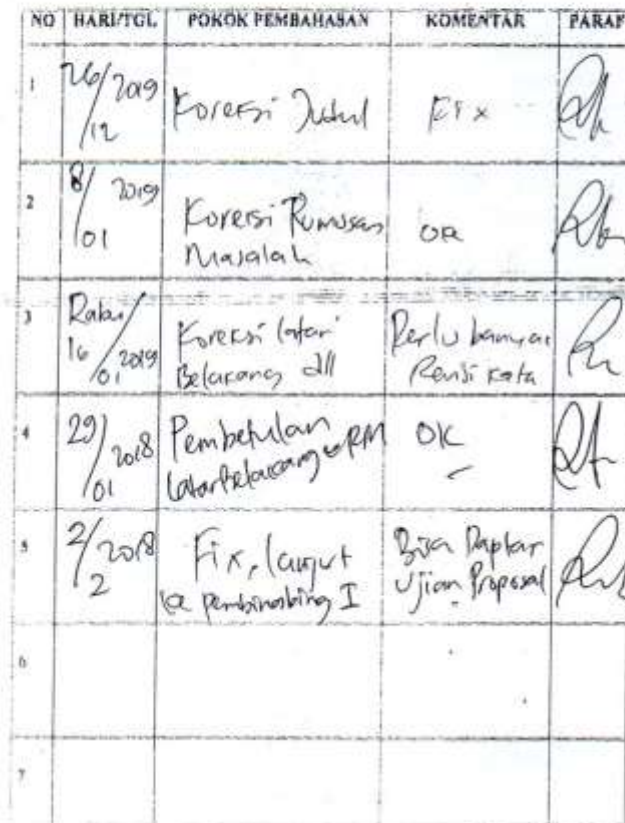 NO HARI/TGL POKOK PEMBAHASAN KOMENTAR PARAF
1 26/12 2019 Koreksi Judul Fix
2 8/01 2019 Koreksi Rumusan Masalah OK
3 Rabu 16/01 2019 Koreksi latar Belakang dll Perlu banyak Revisi kata
4 29/01 2018 Pembetulan latar Belakang & RM OK
5 2/2 2018 Fix, lanjut ke pembimbing I Bisa Daptar Ujian Proposal
6
7